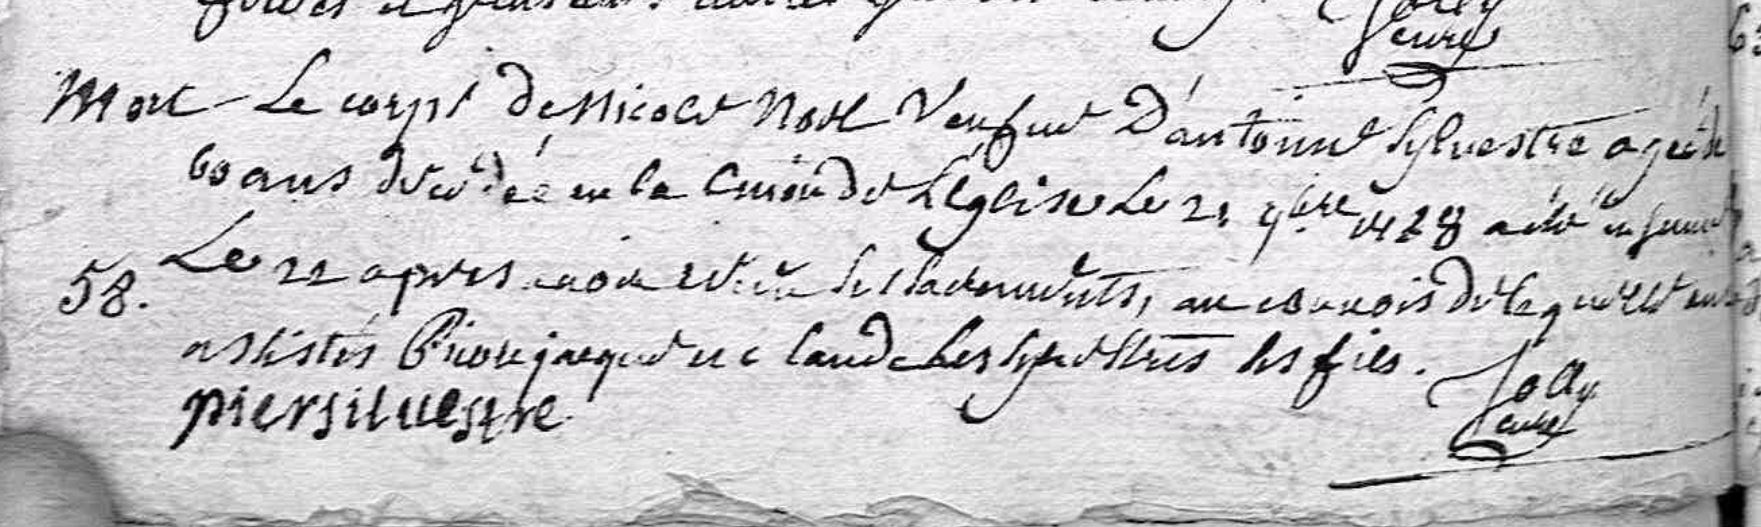 Jolly
curé
Mort Le corps de Nicole Noel veufve D'antoine Sylvestre agée de
60 ans décédée en la Cmion de L'Eglise Le 21 9bre 1728 a été
58. Le 22 apres avoir recu les Sacrements, au convois de laquelle
assistés Pierre jacque et claude les Sylvestres ses fils.
pier siluestre
Jolly
curé